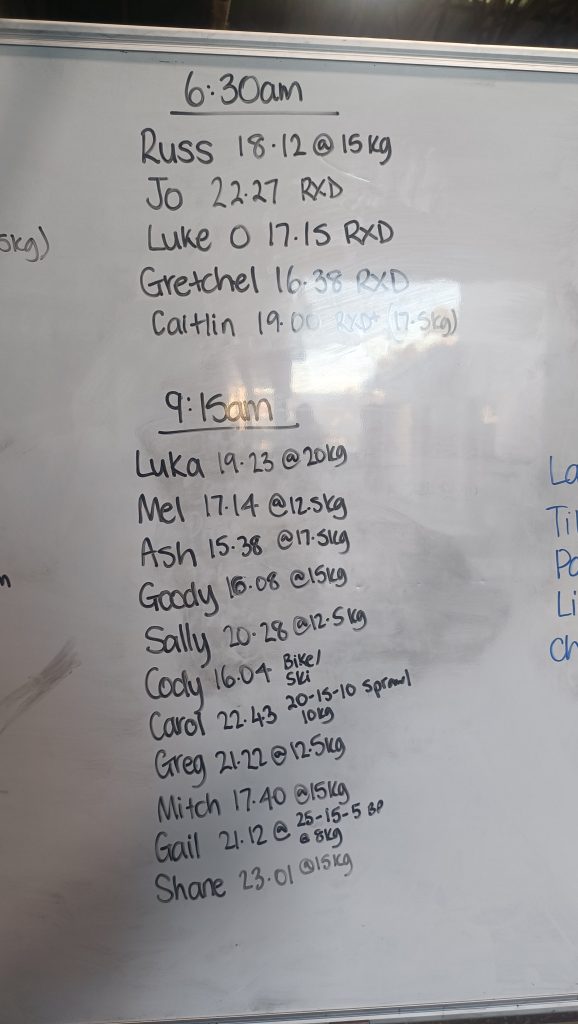 6:30am
Russ 18.12 @ 15kg
Jo 22.27 RXD
Luke O 17.15 RXD
5kg)
Gretchel 16.38 RXD
Caitlin 19.00 RXD+ (17.5kg)
9:15am
Luka 19.23 @ 20kg
Mel 17.14 @12.5kg
Ash 15.38 @17.5kg
Goody 16.08 @15kg
Sally 20.28 @12.5kg
Cody 16.04 Bike/
Ski
Carol 22.43 20-15-10 Sprawl
10kg
Greg 21.22 @ 12.5kg
Mitch 17.40 @15kg
Gail 21.12 @ 25-15-5 BP
@ 8kg
Shane 23.01 @15kg